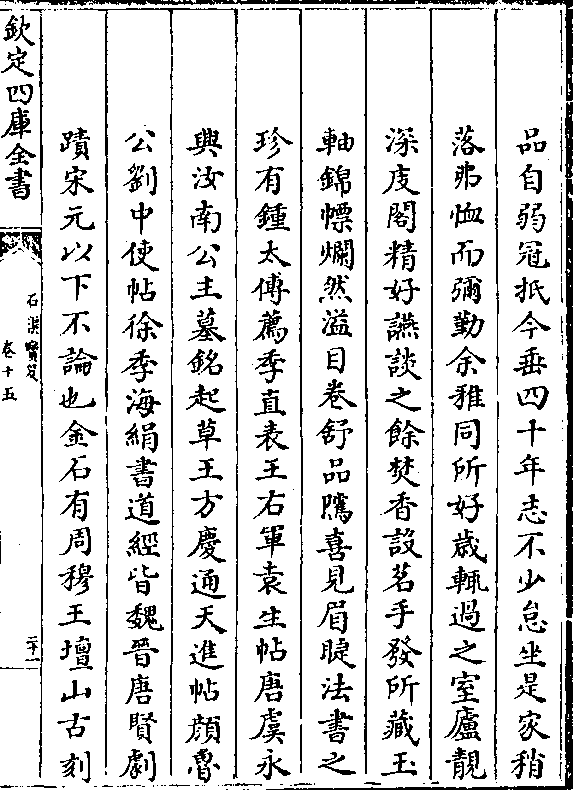 品自弱冠抵今垂四十年志不少怠坐是家稍
落弗恤而彌勤余雅同所好歳輒過之室廬靚
深庋閣精好讌談之餘焚香設茗手發所藏玉
軸錦幖爛然溢目卷舒品隲喜見眉睫法書之
珍有鍾太傅薦季直表王右軍袁生帖唐虞永
興汝南公主墓銘起草王方慶通天進帖顔魯
公劉中使帖徐季海絹書道經皆魏晉唐賢劇
蹟宋元以下不論也金石有周穆王壇山古刻
欽定四庫全書
石渠寳笈
卷十五
二十一